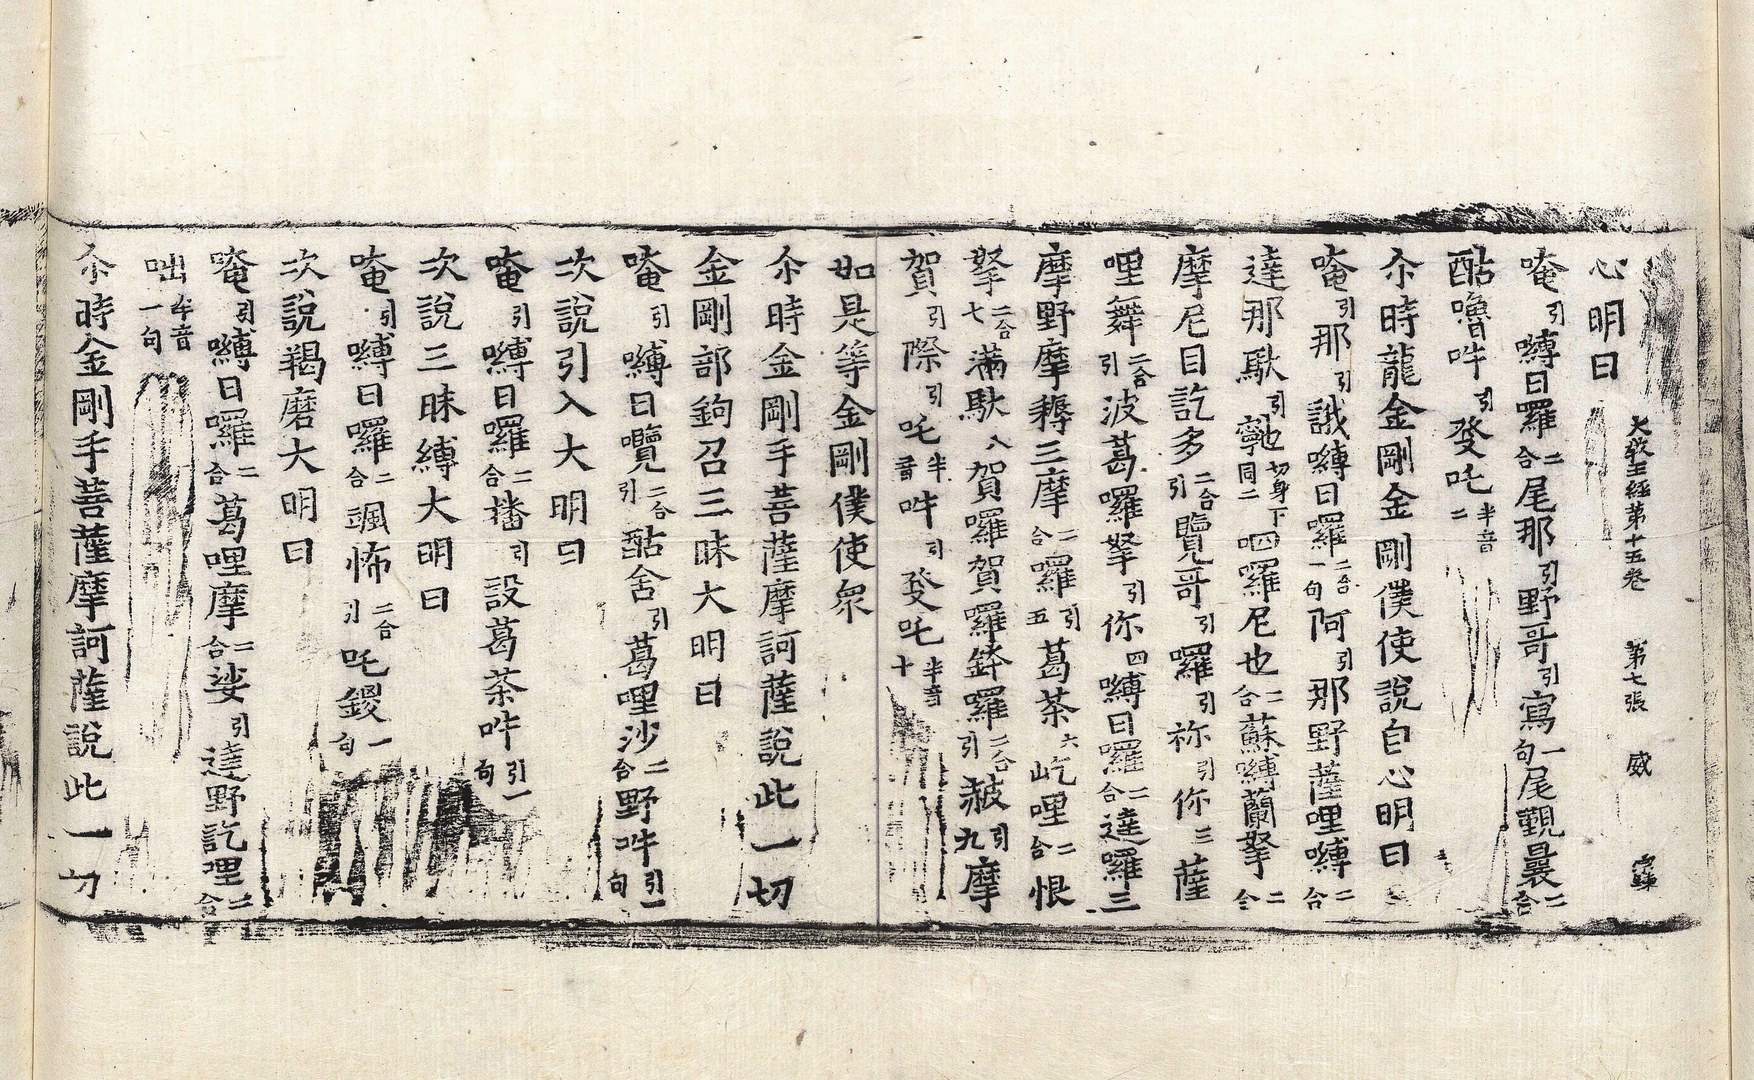 大教王經第十五卷 第七張 威
心明曰
唵引嚩日囉二合尾那引野哥引寫一句尾覲曩二合
酤嚕吽引發吒半音二
尒時龍金剛金剛僕使說自心明曰
唵引那引誐嚩日囉二合一句阿引那野薩哩嚩二合
達那馱引也切身下同二呬囉尼也二合蘇嚩蘭拏二合
摩尼目訖多二合引覽哥引囉引祢引你三薩
哩舞二合引波葛囉拏引你四嚩日囉二合達囉三
摩野摩耨三摩二合囉引五葛茶六屹哩二合恨
拏二合七滿馱八賀囉賀囉鉢囉二合引赧引九摩
賀引際引吒半音吽引發吒半音十
如是等金剛僕使衆
尒時金剛手菩薩摩訶薩說此一切
金剛部鉤召三昧大明曰
唵引嚩日覽二合引酤舍引葛哩沙二合野吽引一句
次說引入大明曰
唵引嚩日囉二合播引設葛茶吽引一句
次說三昧縛大明曰
唵引嚩日囉二合颯怖二合引吒鑁一句
次說羯磨大明曰
唵引嚩日囉二合葛哩摩二合娑引達野訖哩二合
咄半音一句
尒時金剛手菩薩摩訶薩說此一切